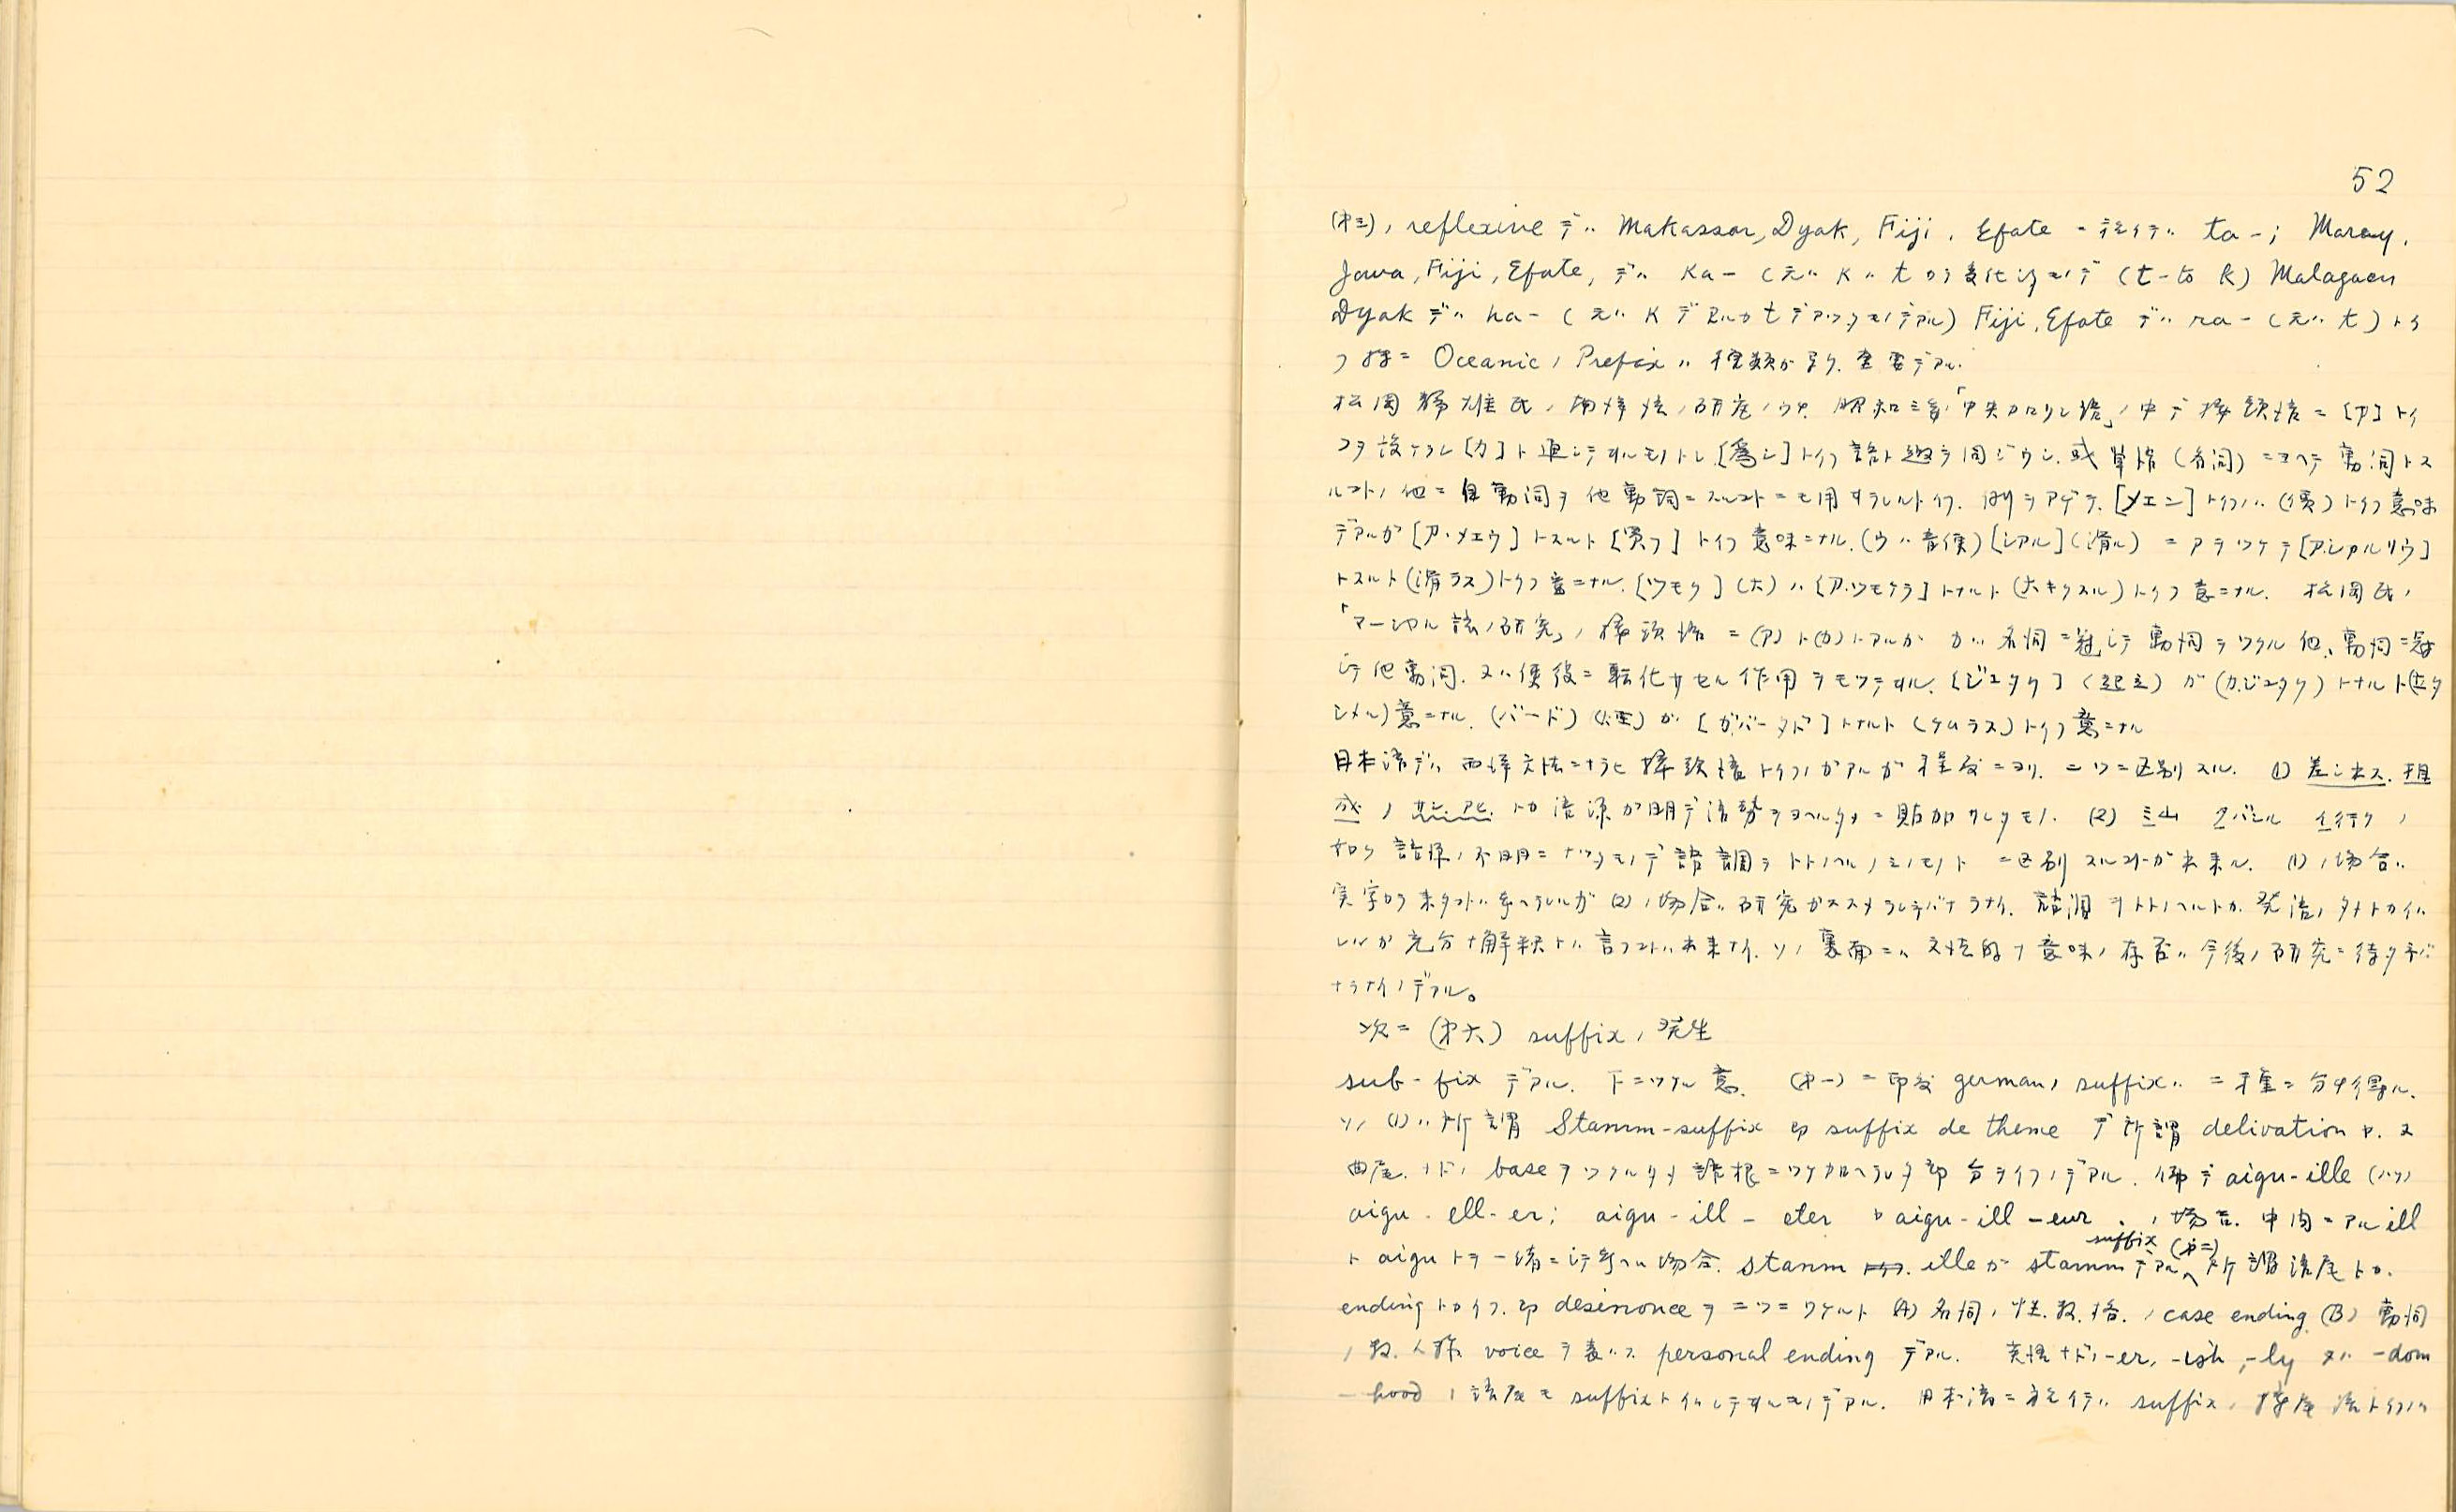 52
(才三)、reflexive デハ Makassar, Dyak, Fiji, Efate ニ於イテハ ta-; Maray,
Jawa, Fiji, Efate, デハ Ka- (元ハ K ハ t カラ変化シタモノデ (t-to k) Malagasu
Dyak デハ ha- (元ハ K デアルカ t デアッタモノデアル) Fiji, Efate デハ ra- (元ハ t) トイ
フ様ニ Oceanic ノ Prefix ハ 種類ガ多ク、重要デアル.
松岡静雄氏ノ南洋語ノ研究ノウチ 昭和三年「中央カロリン語」ノ中デ接頭語ニ[ア]トイ
フヲ設ケラレ[カ]ト通ジテヰルモノトシ[為シ]トイフ語ト趣ヲ同ジウシ、或単語(名詞)ニ ヘテ動詞トス
ルコト、他ニ自動詞ヲ他動詞ニスルコトニモ用ヰラレルトイフ. 例ヲアゲテ、[メエン]トイフハ(価)トイフ意味
デアルガ[ア・メエウ]トスルト[買フ]トイフ意味ニナル.(ウハ音便)[シアル](滑ル) ニアヲツケテ[ア.シアルリウ]
トスルト(滑ラス)トイフ意ニナル.[ツモク](大)ハ[ア.ツモケラ]トナルト(大キクスル)トイフ意ニナル. 松岡氏ノ
「マーシャル語ノ研究」ノ接頭語ニ(ア)ト(カ)トアルガ カハ名詞ニ冠シテ動詞ヲツクル他、動詞ニ冠
シテ他動詞、又ハ使役ニ転化サセル作用ヲモツテヰル.[ジュタク](起立)ガ(カ.ジュタク)トナルト(立タ
シメル)意ニナル. (バード)(煙)ガ[カ.バータド]トナルト(ケムラス)トイフ意ニナル
日本語デハ 西洋文法ニナラヒ接頭語トイフノガアルガ程度ニヨリ、二ツニ区別スル. (1) 差シ出ス、相
成ノサシ、アヒ、トカ語源ガ明デ語勢ヲヨヘルタメニ貼加サレタモノ. (2) ミ山 タバシル イ行ク、ノ
如ク語源ノ不明ニナツタモノデ語調ヲトトノヘルノミノモノト ニ区別スルコトガ出来ル. (1)ノ場合ハ
実字カラ来タコトハ考ヘラレルガ(2)ノ場合ハ研究ガススメラレネバナラナイ. 語調ヲトトノヘルトカ、発語ノタメトカイハ
レルガ充分ナ解釈トハ言フコトハ出来ナイ. ソノ裏面ニハ文法的ナ意味ノ存否ハ今後ノ研究ニ待タネバ
ナラナイノデアル。
次ニ (才六) suffixノ発生
sub-fix デアル. 下ニツケル意. (才一)ニ印度 germanノ suffixハ 二種ニ分チ得ル.
ソノ(1)ハ所謂 Stamm-suffix 即 suffix de theme デ所謂 delivation カ、又
曲尾、ナドノ base ヲツクルタメ語根ニツケ加ヘラレタ部分ヲイフノデアル. 仏デ aigu-ille (ハリ)
aigu-ell-er; aigu-ill-eter ト aigu-ill-eur . ノ場合、中間ニアル ill
ト aigu トヲ一緒ニシテ考ヘル場合、stamm トイフ. ille ガ stamm suffix デアル (才二) 所謂語尾トカ、
ending トカイフ. 即 desinonce ヲ二ツニワケルト (A) 名詞ノ性、数、格、ノ case ending (B) 動詞
ノ数、人称、voice ヲ表ハス personal ending デアル. 英語ナドノ -er, -ish, -ly 又ハ -dom
-hood ノ語尾モ suffix トイハレテヰルモノデアル. 日本語ニ於イテハ suffix ノ接尾語トイフノハ